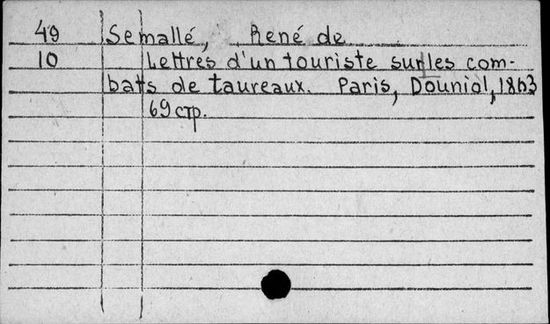 49 Semallé, René de
10 Lettres d'un touriste sur les com-
bats de taureaux. Paris, Douniol, 1863
69 стр.